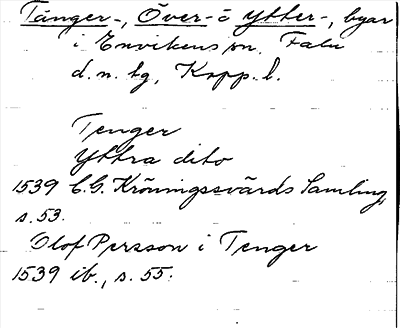 Tänger-, Över- o Ytter-, byar
i Envikens sn. Falu
d.n. tg, Kopp. l.
Tenger
Yttra dito
1539 C.G. Kröningssvärds Samling,
s. 53.
Olof Persson i Tenger
1539 ib., s. 55.